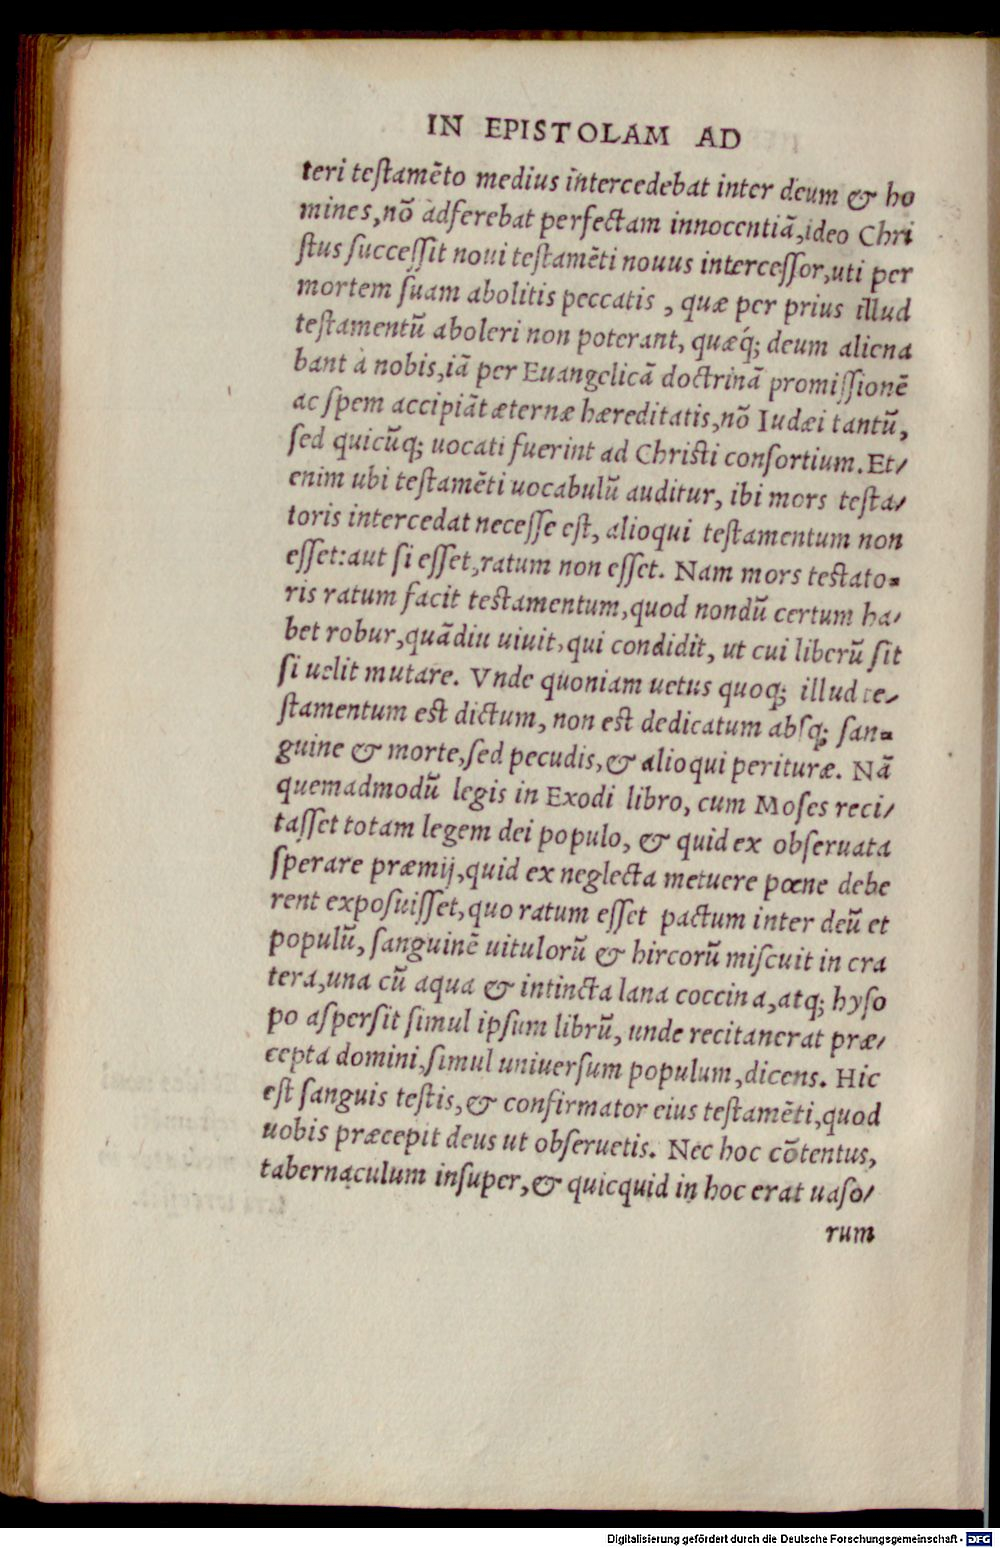 IN EPISTOLAM AD
teri testamẽto medius intercedebat inter deum & ho
mines, nõ adferebat perfectam innocentiã, ideo Chri
stus successit noui testamẽti nouus intercessor, uti per
mortem suam abolitis peccatis, quæ per prius illud
testamentũ aboleri non poterant, quæq́; deum aliena
bant à nobis, iã per Euangelicã doctrinã promissionẽ
ac spem accipiãt æternæ hæreditatis, nõ Iudæi tantũ,
sed quicũq; uocati fuerint ad Christi consortium. Et/
enim ubi testamẽti uocabulũ auditur, ibi mors testa/
toris intercedat necesse est, alioqui testamentum non
esset: aut si esset, ratum non esset. Nam mors testato-
ris ratum facit testamentum, quod nondũ certum ha/
bet robur, quãdiu uiuit, qui condidit, ut cui liberũ sit
si uelit mutare. Vnde quoniam uetus quoq; illud te/
stamentum est dictum, non est dedicatum absq; san-
guine & morte, sed pecudis, & alioqui perituræ. Nã
quemadmodũ legis in Exodi libro, cum Moses reci/
tasset totam legem dei populo, & quid ex obseruata
sperare præmij, quid ex neglecta metuere pœne debe
rent exposuisset, quo ratum esset pactum inter deũ et
populũ, sanguinẽ uitulorũ & hircorũ miscuit in cra
tera, una cũ aqua & intincta lana coccina, atq; hyso
po aspersit simul ipsum librũ, unde recitauerat præ/
cepta domini, simul uniuersum populum, dicens. Hic
est sanguis testis, & confirmator eius testamẽti, quod
uobis præcepit deus ut obseruetis. Nec hoc cõtentus,
tabernaculum insuper, & quicquid in hoc erat uaso/
rum
Digitalisierung gefördert durch die Deutsche Forschungsgemeinschaft - DFG